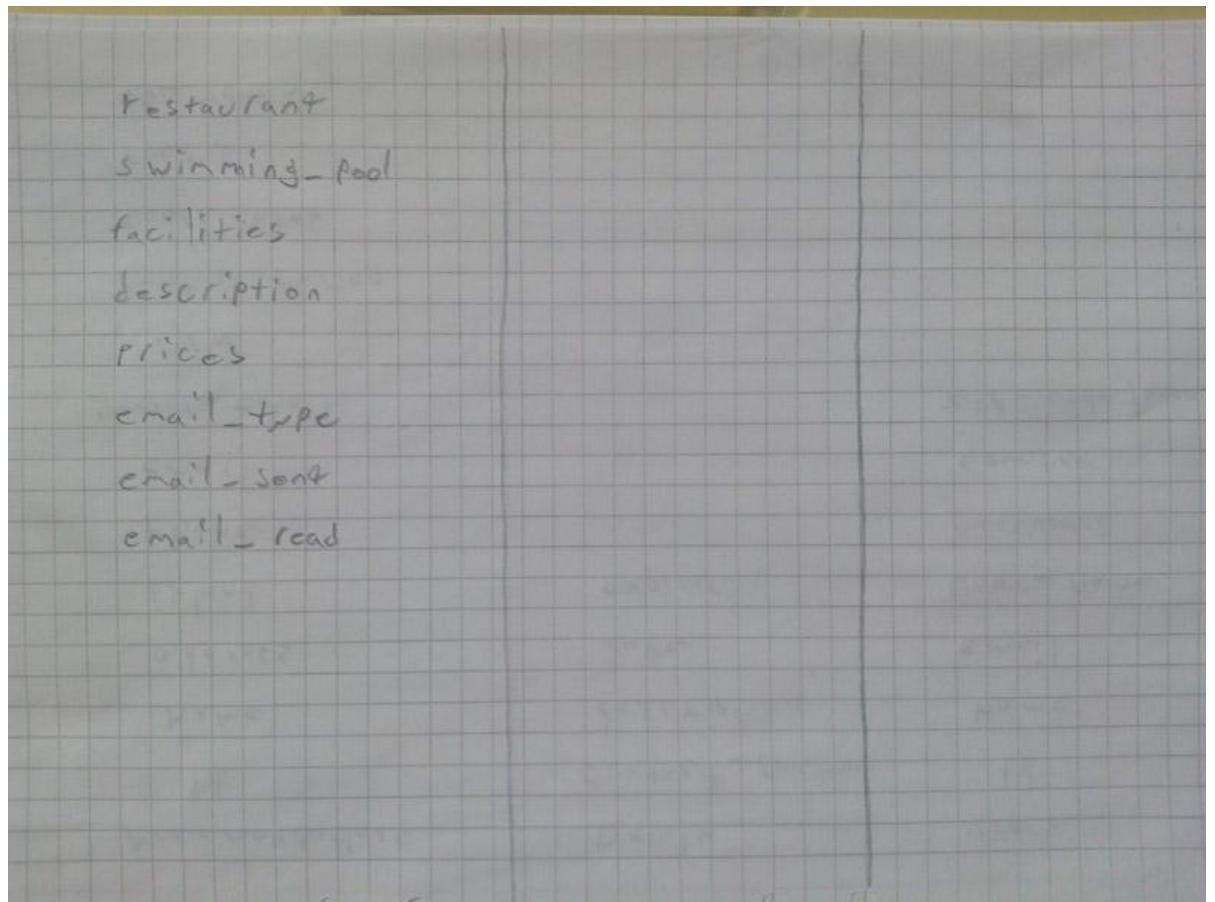 restaurant
swimming_pool
facilities
description
prices
email_type
email_sent
email_read